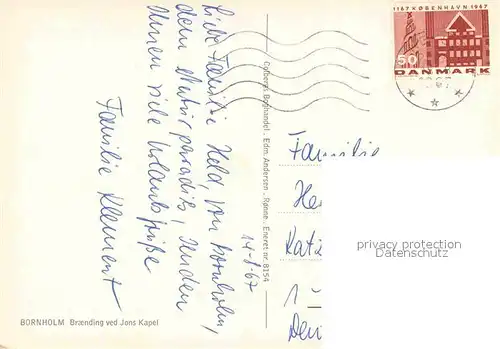 1167 KØBENHAVN 1967
50
DANMARK
Familie
He
Kat
privacy protection
Datenschutz
1 -
14-8-67
Colbergs Boghandel · Edm. Andersen · Rønne · Eneret nr. 8154
Familie Held, von Bornholm,
dem Naturparadis, senden
Ihnen viele Urlaubsgrüße
Familie Klement
BORNHOLM Brænding ved Jons Kapel